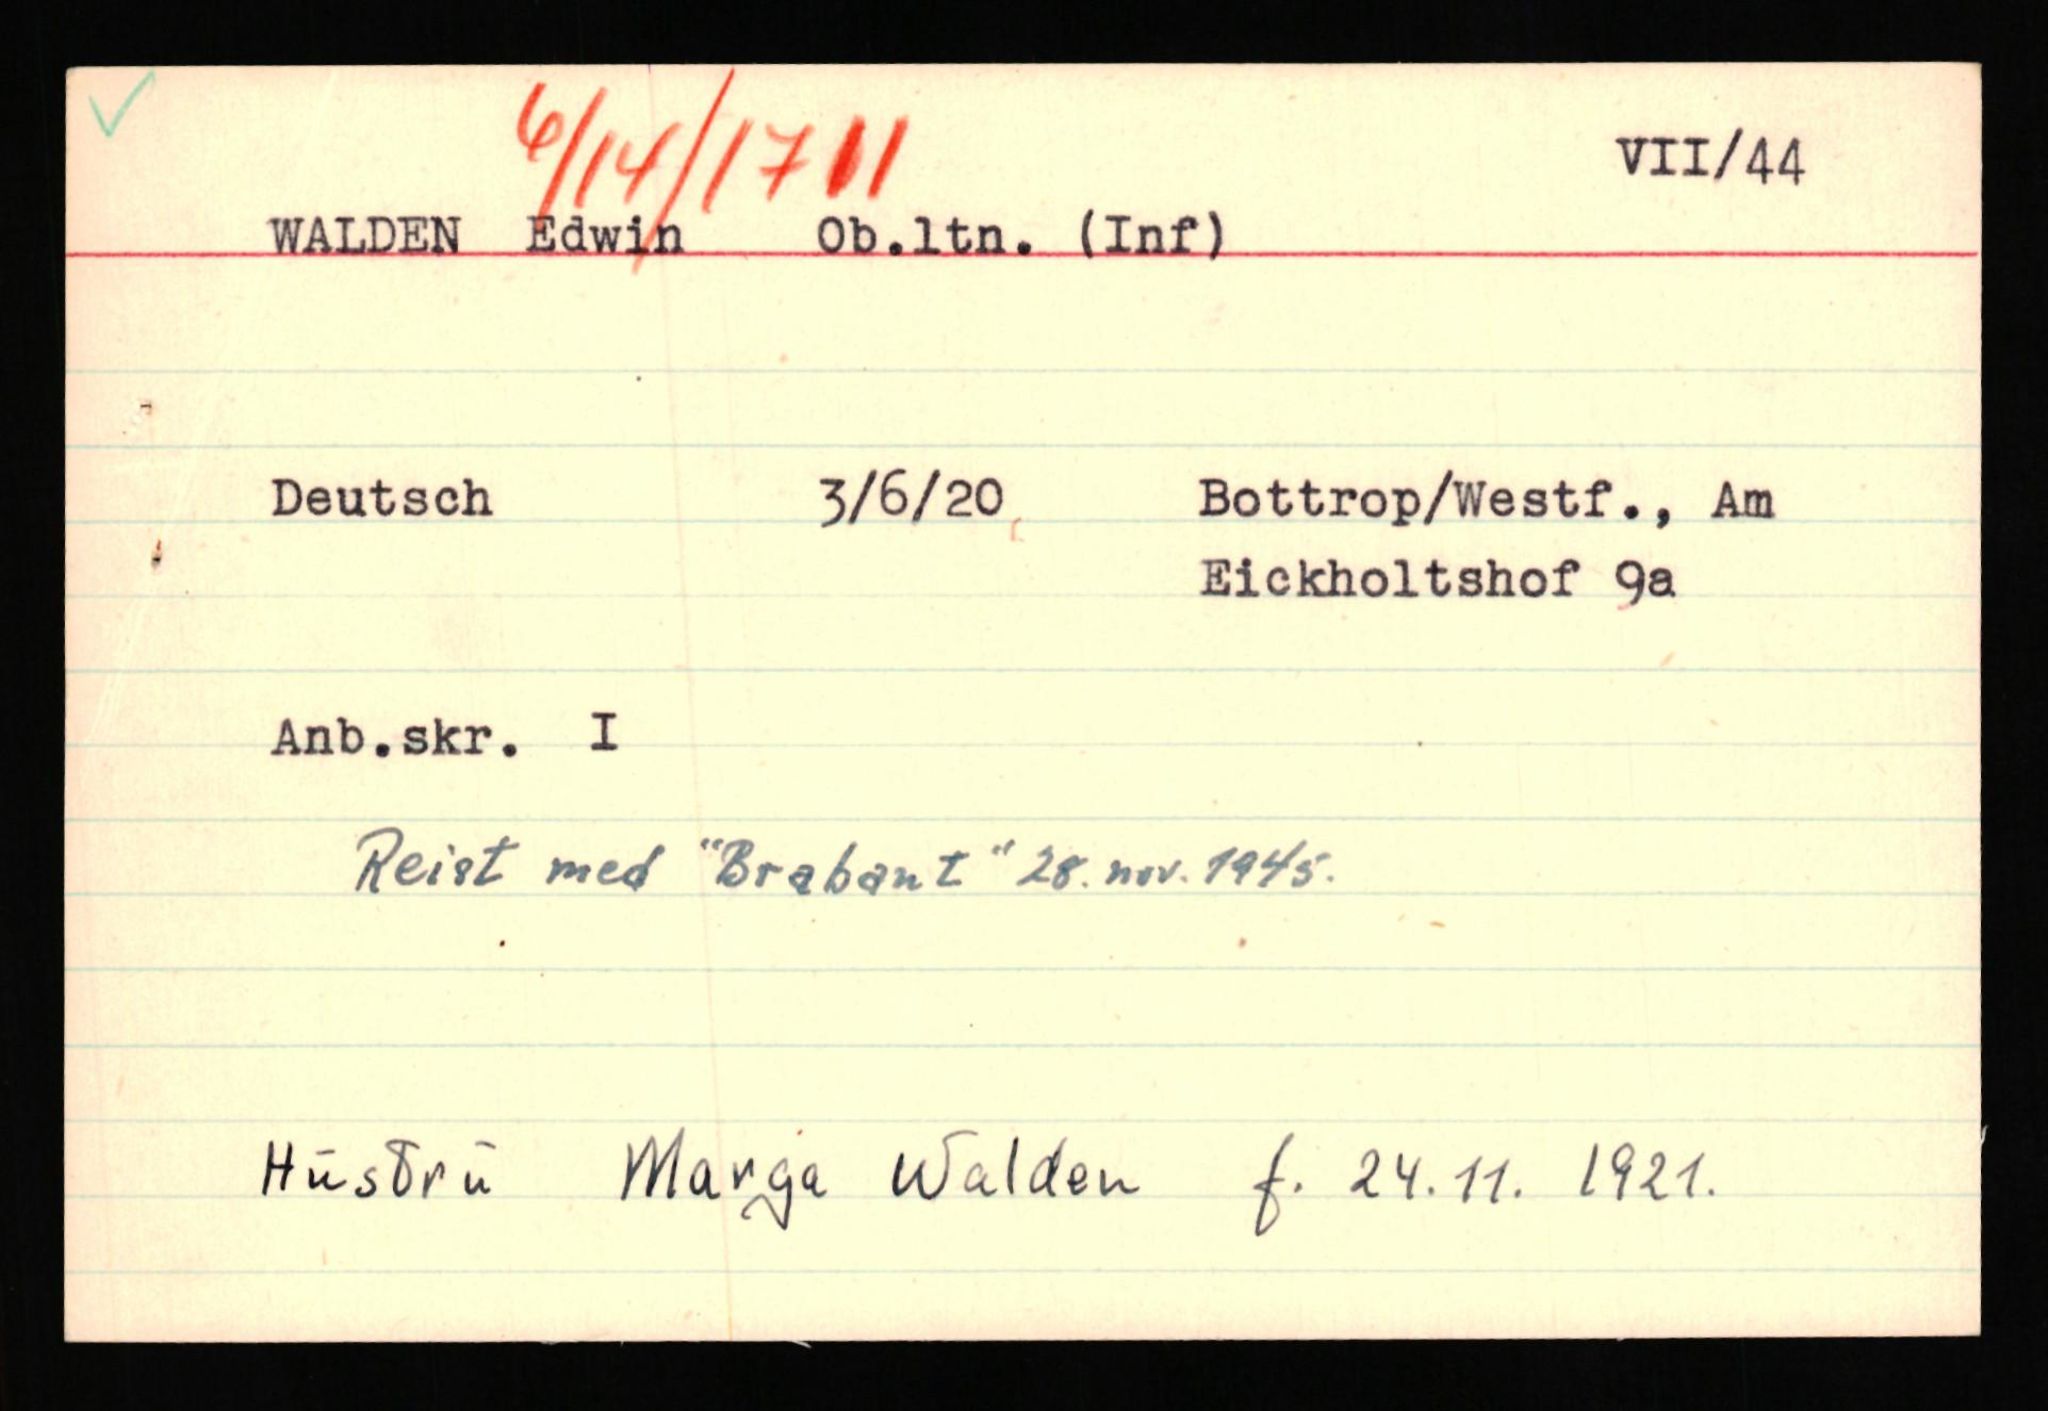 6/14/17 11
VII/44
WALDEN Edwin Ob.ltn. (Inf)
Deutsch 3/6/20 Bottrop/Westf., Am
Eickholtshof 9a
Anb.skr. I
Reist med "Brabant" 28. nov. 1945.
Hustru Marga Walden f. 24.11. 1921.